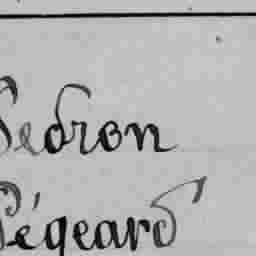 Pedron
Pégeard